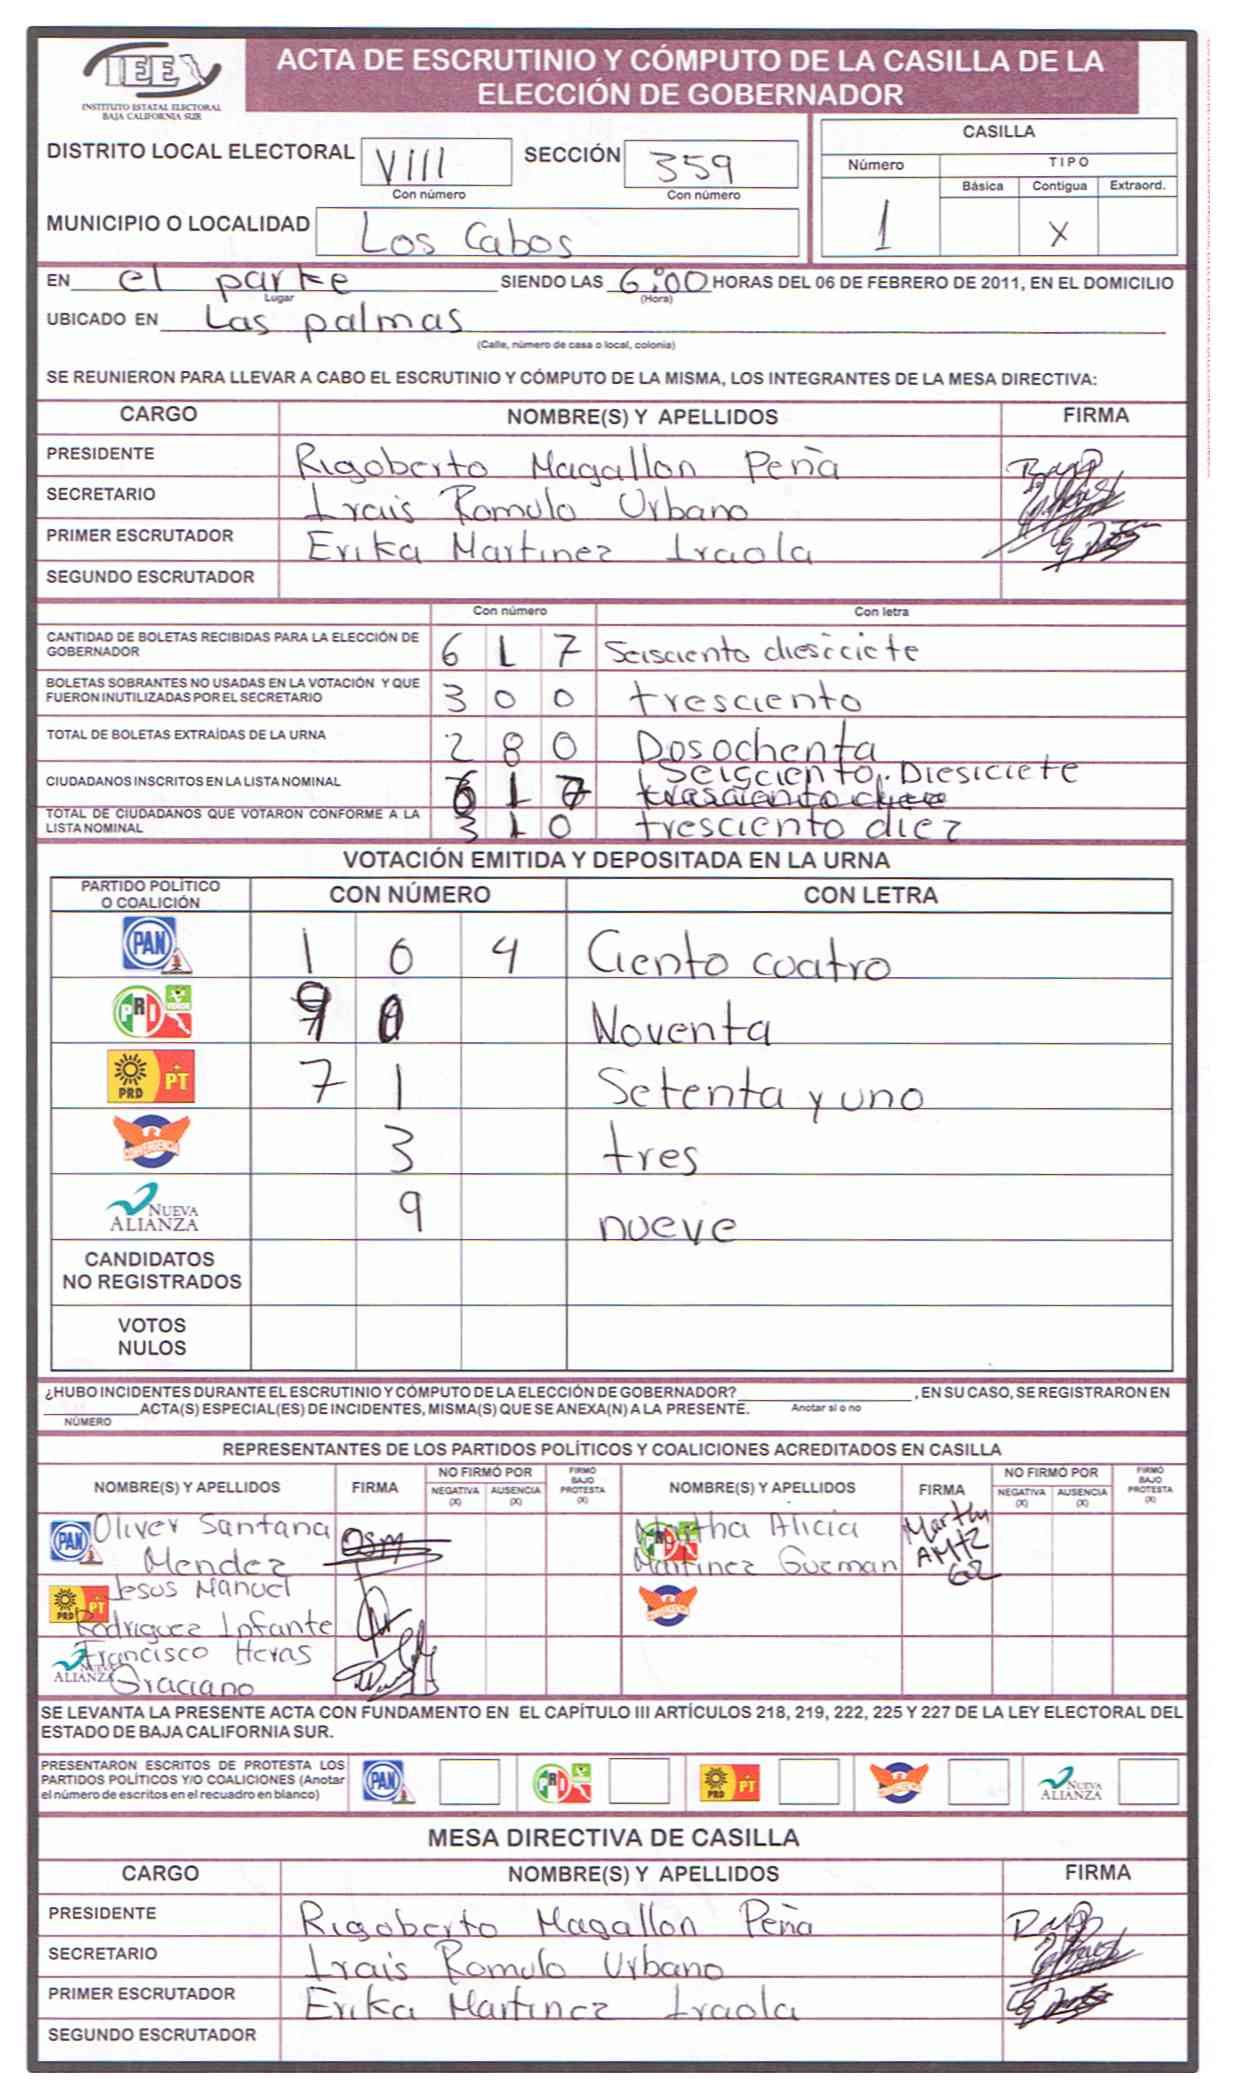 IEE
INSTITUTO ESTATAL ELECTORAL
BAJA CALIFORNIA SUR
ACTA DE ESCRUTINIO Y CÓMPUTO DE LA CASILLA DE LA
ELECCIÓN DE GOBERNADOR
DISTRITO LOCAL ELECTORAL VIII SECCIÓN 359
Con número Con número
MUNICIPIO O LOCALIDAD Los Cabos
CASILLA
Número TIPO
Básica Contigua Extraord.
1 X
EN el parke SIENDO LAS 6:00 HORAS DEL 06 DE FEBRERO DE 2011, EN EL DOMICILIO
Lugar (Hora)
UBICADO EN Las palmas
(Calle, número de casa o local, colonia)
SE REUNIERON PARA LLEVAR A CABO EL ESCRUTINIO Y CÓMPUTO DE LA MISMA, LOS INTEGRANTES DE LA MESA DIRECTIVA:
CARGO NOMBRE(S) Y APELLIDOS FIRMA
PRESIDENTE Rigoberto Magallon Peña
SECRETARIO Irais Romulo Urbano
PRIMER ESCRUTADOR Erika Martinez Iraola
SEGUNDO ESCRUTADOR
Con número Con letra
CANTIDAD DE BOLETAS RECIBIDAS PARA LA ELECCIÓN DE
GOBERNADOR 6 1 7 Seisciento diesiciete
BOLETAS SOBRANTES NO USADAS EN LA VOTACIÓN Y QUE
FUERON INUTILIZADAS POR EL SECRETARIO 3 0 0 tresciento
TOTAL DE BOLETAS EXTRAÍDAS DE LA URNA 2 8 0 Dosochenta
CIUDADANOS INSCRITOS EN LA LISTA NOMINAL 6 1 7 Seisciento Diesiciete
TOTAL DE CIUDADANOS QUE VOTARON CONFORME A LA
LISTA NOMINAL 3 1 0 tresciento diez
VOTACIÓN EMITIDA Y DEPOSITADA EN LA URNA
PARTIDO POLÍTICO
O COALICIÓN CON NÚMERO CON LETRA
PAN 1 0 4 Ciento cuatro
PRI VERDE 9 0 Noventa
PRD PT 7 1 Setenta y uno
CONVERGENCIA 3 tres
NUEVA
ALIANZA 9 nueve
CANDIDATOS
NO REGISTRADOS
VOTOS
NULOS
¿HUBO INCIDENTES DURANTE EL ESCRUTINIO Y CÓMPUTO DE LA ELECCIÓN DE GOBERNADOR? , EN SU CASO, SE REGISTRARON EN
ACTA(S) ESPECIAL(ES) DE INCIDENTES, MISMA(S) QUE SE ANEXA(N) A LA PRESENTE. Anotar sí o no
NÚMERO
REPRESENTANTES DE LOS PARTIDOS POLÍTICOS Y COALICIONES ACREDITADOS EN CASILLA
NOMBRE(S) Y APELLIDOS FIRMA NO FIRMÓ POR NEGATIVA (X) AUSENCIA (X) FIRMÓ BAJO PROTESTA (X) NOMBRE(S) Y APELLIDOS FIRMA NO FIRMÓ POR NEGATIVA (X) AUSENCIA (X) FIRMÓ BAJO PROTESTA (X)
PAN Oliver Santana
Mendez OSM
PRI Martha Alicia
Martinez Guzman
PRD PT Jesus Manuel
Rodriguez Infante
CONVERGENCIA
NUEVA ALIANZA Francisco Heras
Graciano
SE LEVANTA LA PRESENTE ACTA CON FUNDAMENTO EN EL CAPÍTULO III ARTÍCULOS 218, 219, 222, 225 Y 227 DE LA LEY ELECTORAL DEL
ESTADO DE BAJA CALIFORNIA SUR.
PRESENTARON ESCRITOS DE PROTESTA LOS
PARTIDOS POLÍTICOS Y/O COALICIONES (Anotar
el número de escritos en el recuadro en blanco)
PAN PRI PRD PT CONVERGENCIA NUEVA ALIANZA
MESA DIRECTIVA DE CASILLA
CARGO NOMBRE(S) Y APELLIDOS FIRMA
PRESIDENTE Rigoberto Magallon Peña
SECRETARIO Irais Romulo Urbano
PRIMER ESCRUTADOR Erika Martinez Iraola
SEGUNDO ESCRUTADOR